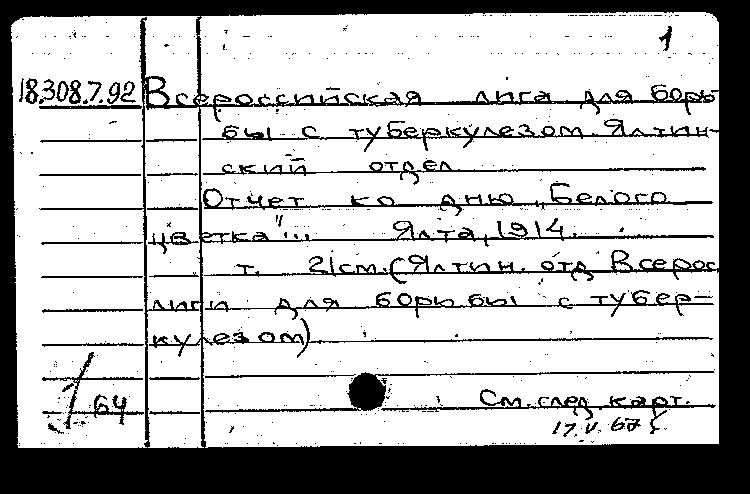 1
18.308.7.92 Всероссийская лига для борь
бы с туберкулезом. Ялтин-
ский отдел
Отчет ко дню „Белого
цветка"... Ялта, 1914.
т. 21см. (Ялтин. отд. Всерос.
лиги для борьбы с тубер-
кулезом)
64 См. след. карт.
17.V.67